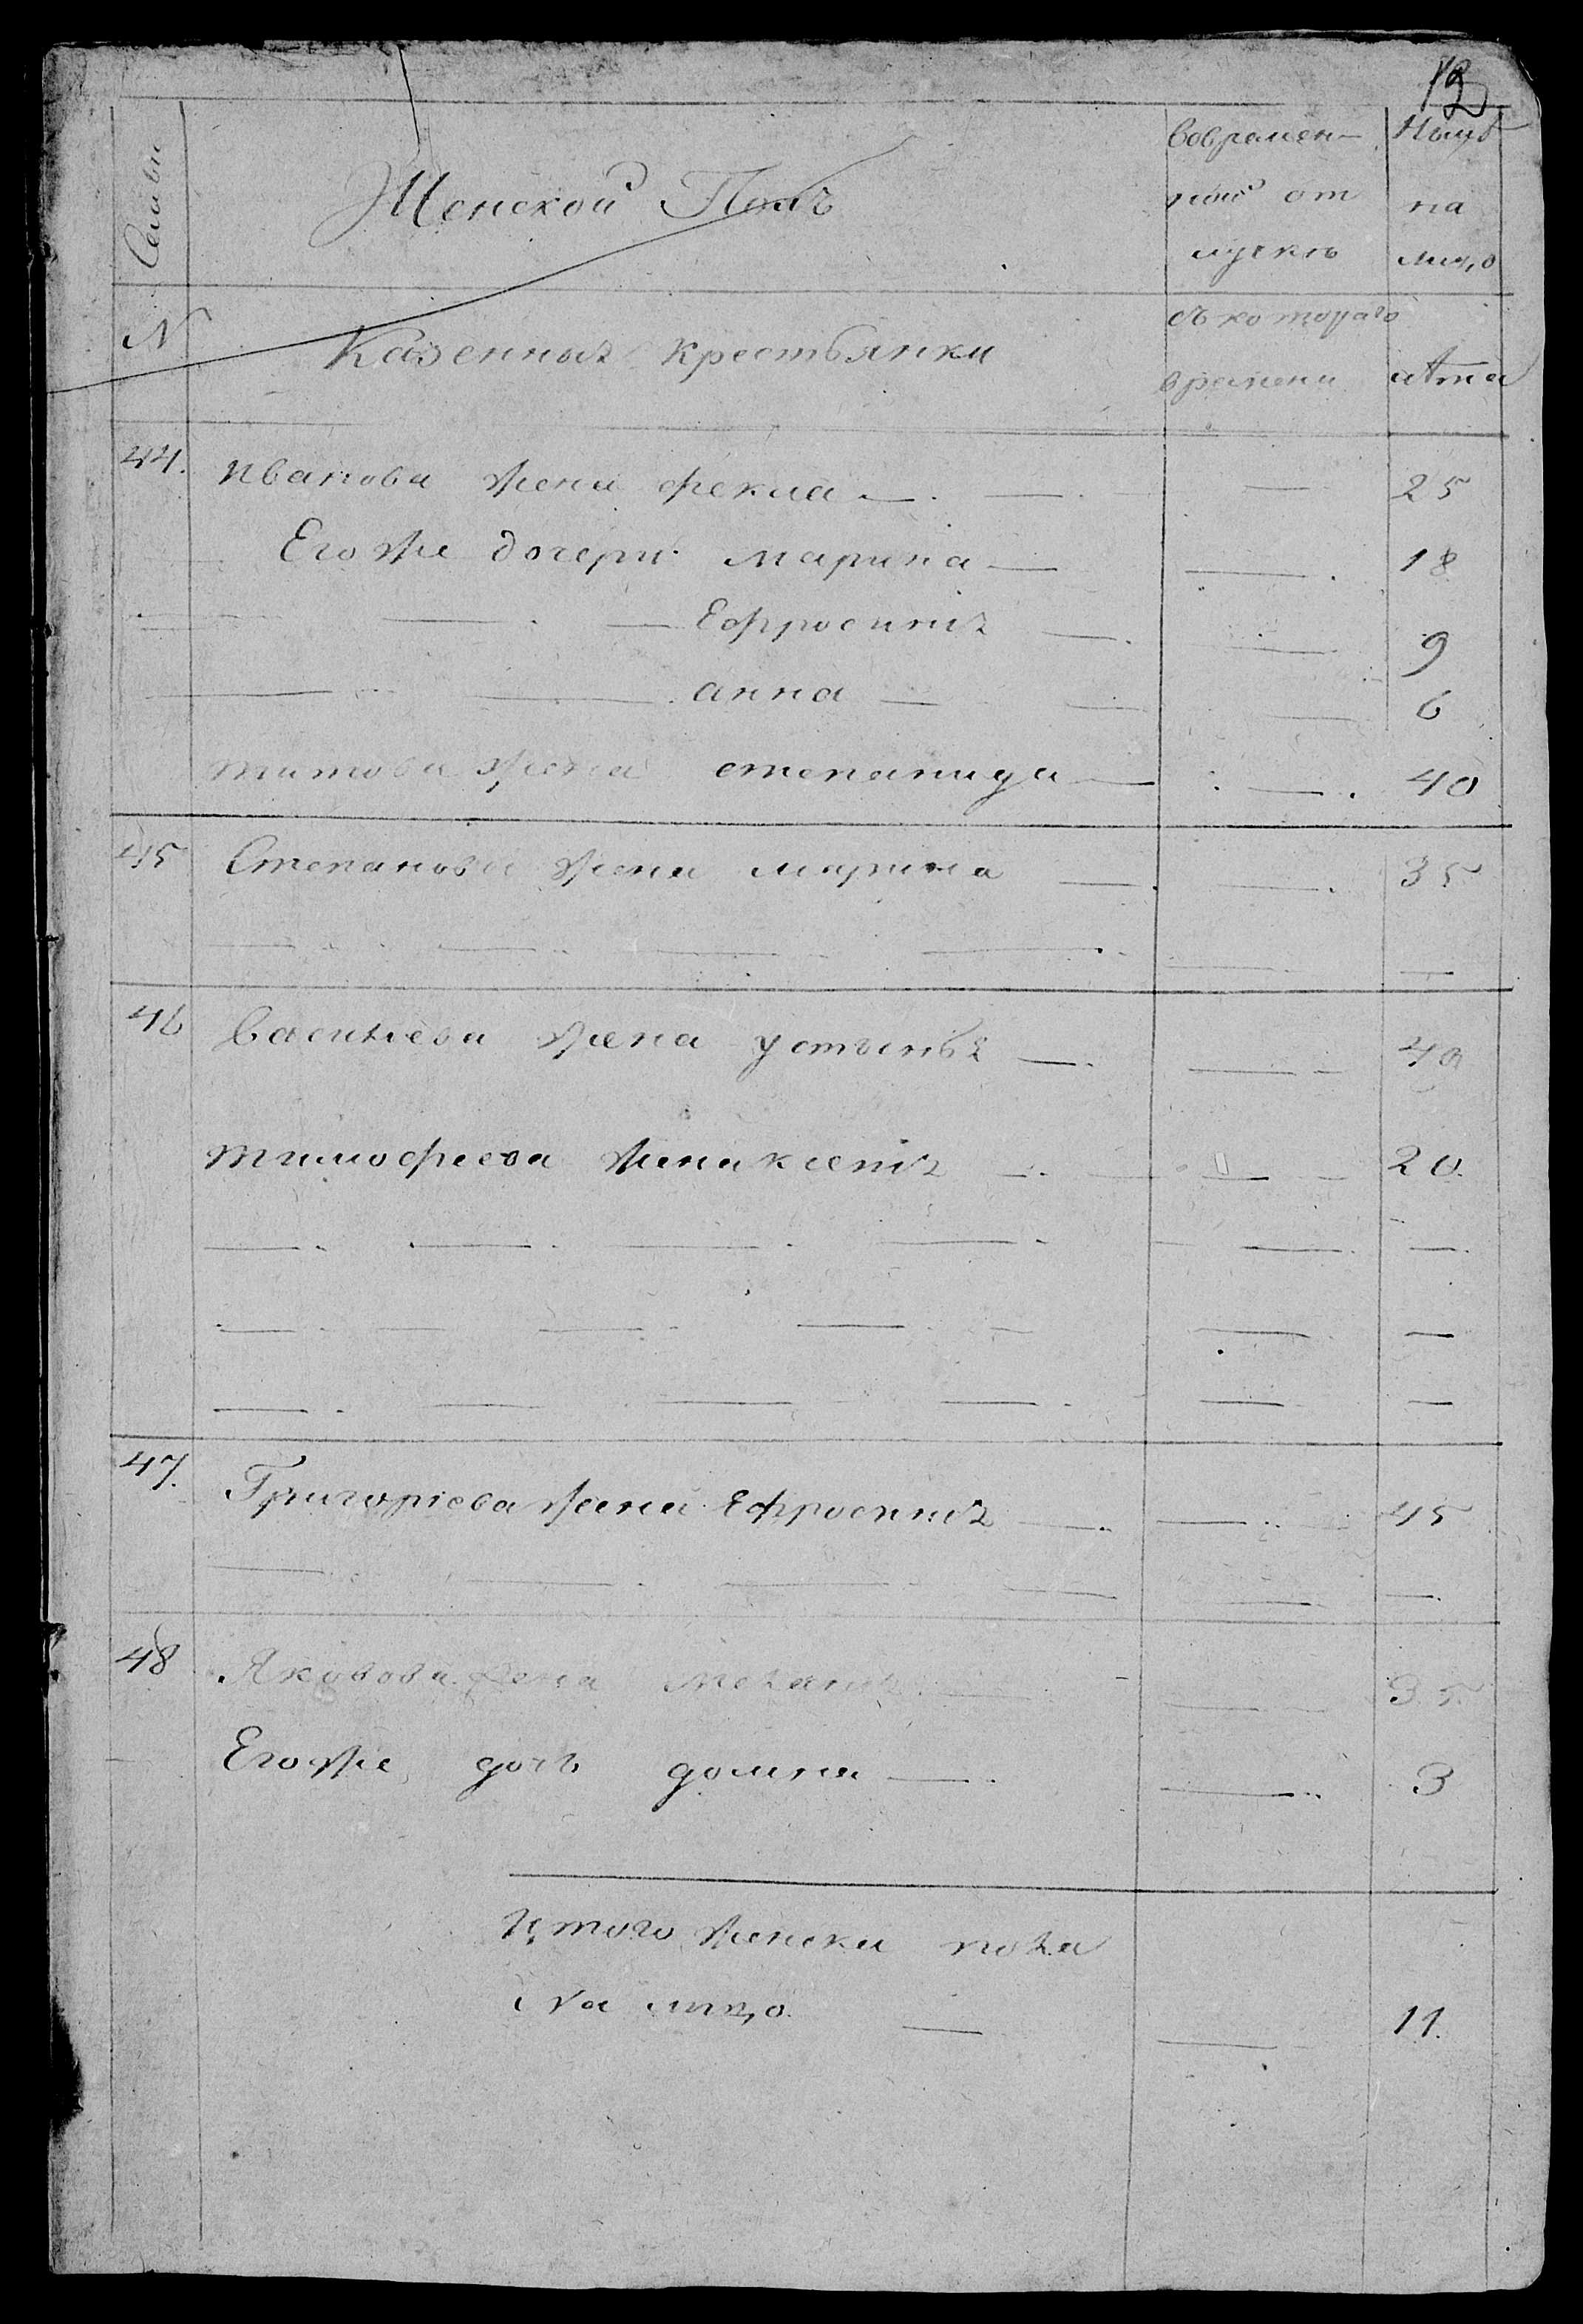 13
Семьи
Женской Полъ
Вовремен-
ной от
лучкѣ
Нынѣ
на
лицо
N
Казенныя крестьянки
съ котораго
времени
лѣта
44. Иванова жена фекла — 25
Его же дочери марина — 18
Ефросинія — 9
анна — 6
титова жена степанида — 40
45 Степанова жена марина — 35
46 Васильева жена устинья — 40
тимофеева жена ксенія — 20.
47. Григоріева жена Ефросинія — 45
48 Яковова жена меланія — 35.
Его же дочь домна — 3
Итого женска пола
На лицо. — 11.